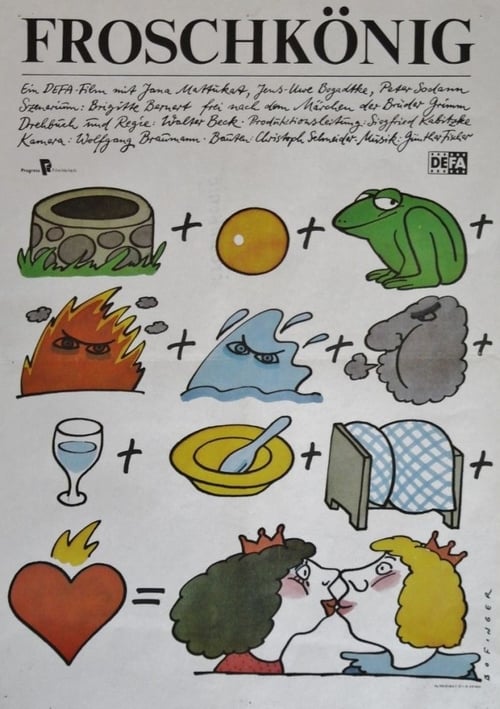 FROSCHKÖNIG
Ein DEFA-Film mit Jana Mattukat, Jens-Uwe Bogadtke, Peter Sodann
Szenarium: Brigitte Bernert frei nach dem Märchen der Brüder Grimm
Drehbuch und Regie: Walter Beck · Produktionsleitung: Siegfried Kabitzke
Kamera: Wolfgang Braumann · Bauten: Christoph Schneider · Musik: Günther Fischer
Progress Filmverleih
DEFA
+ +
+
+ +
+
+ +
+
=
BOFINGER